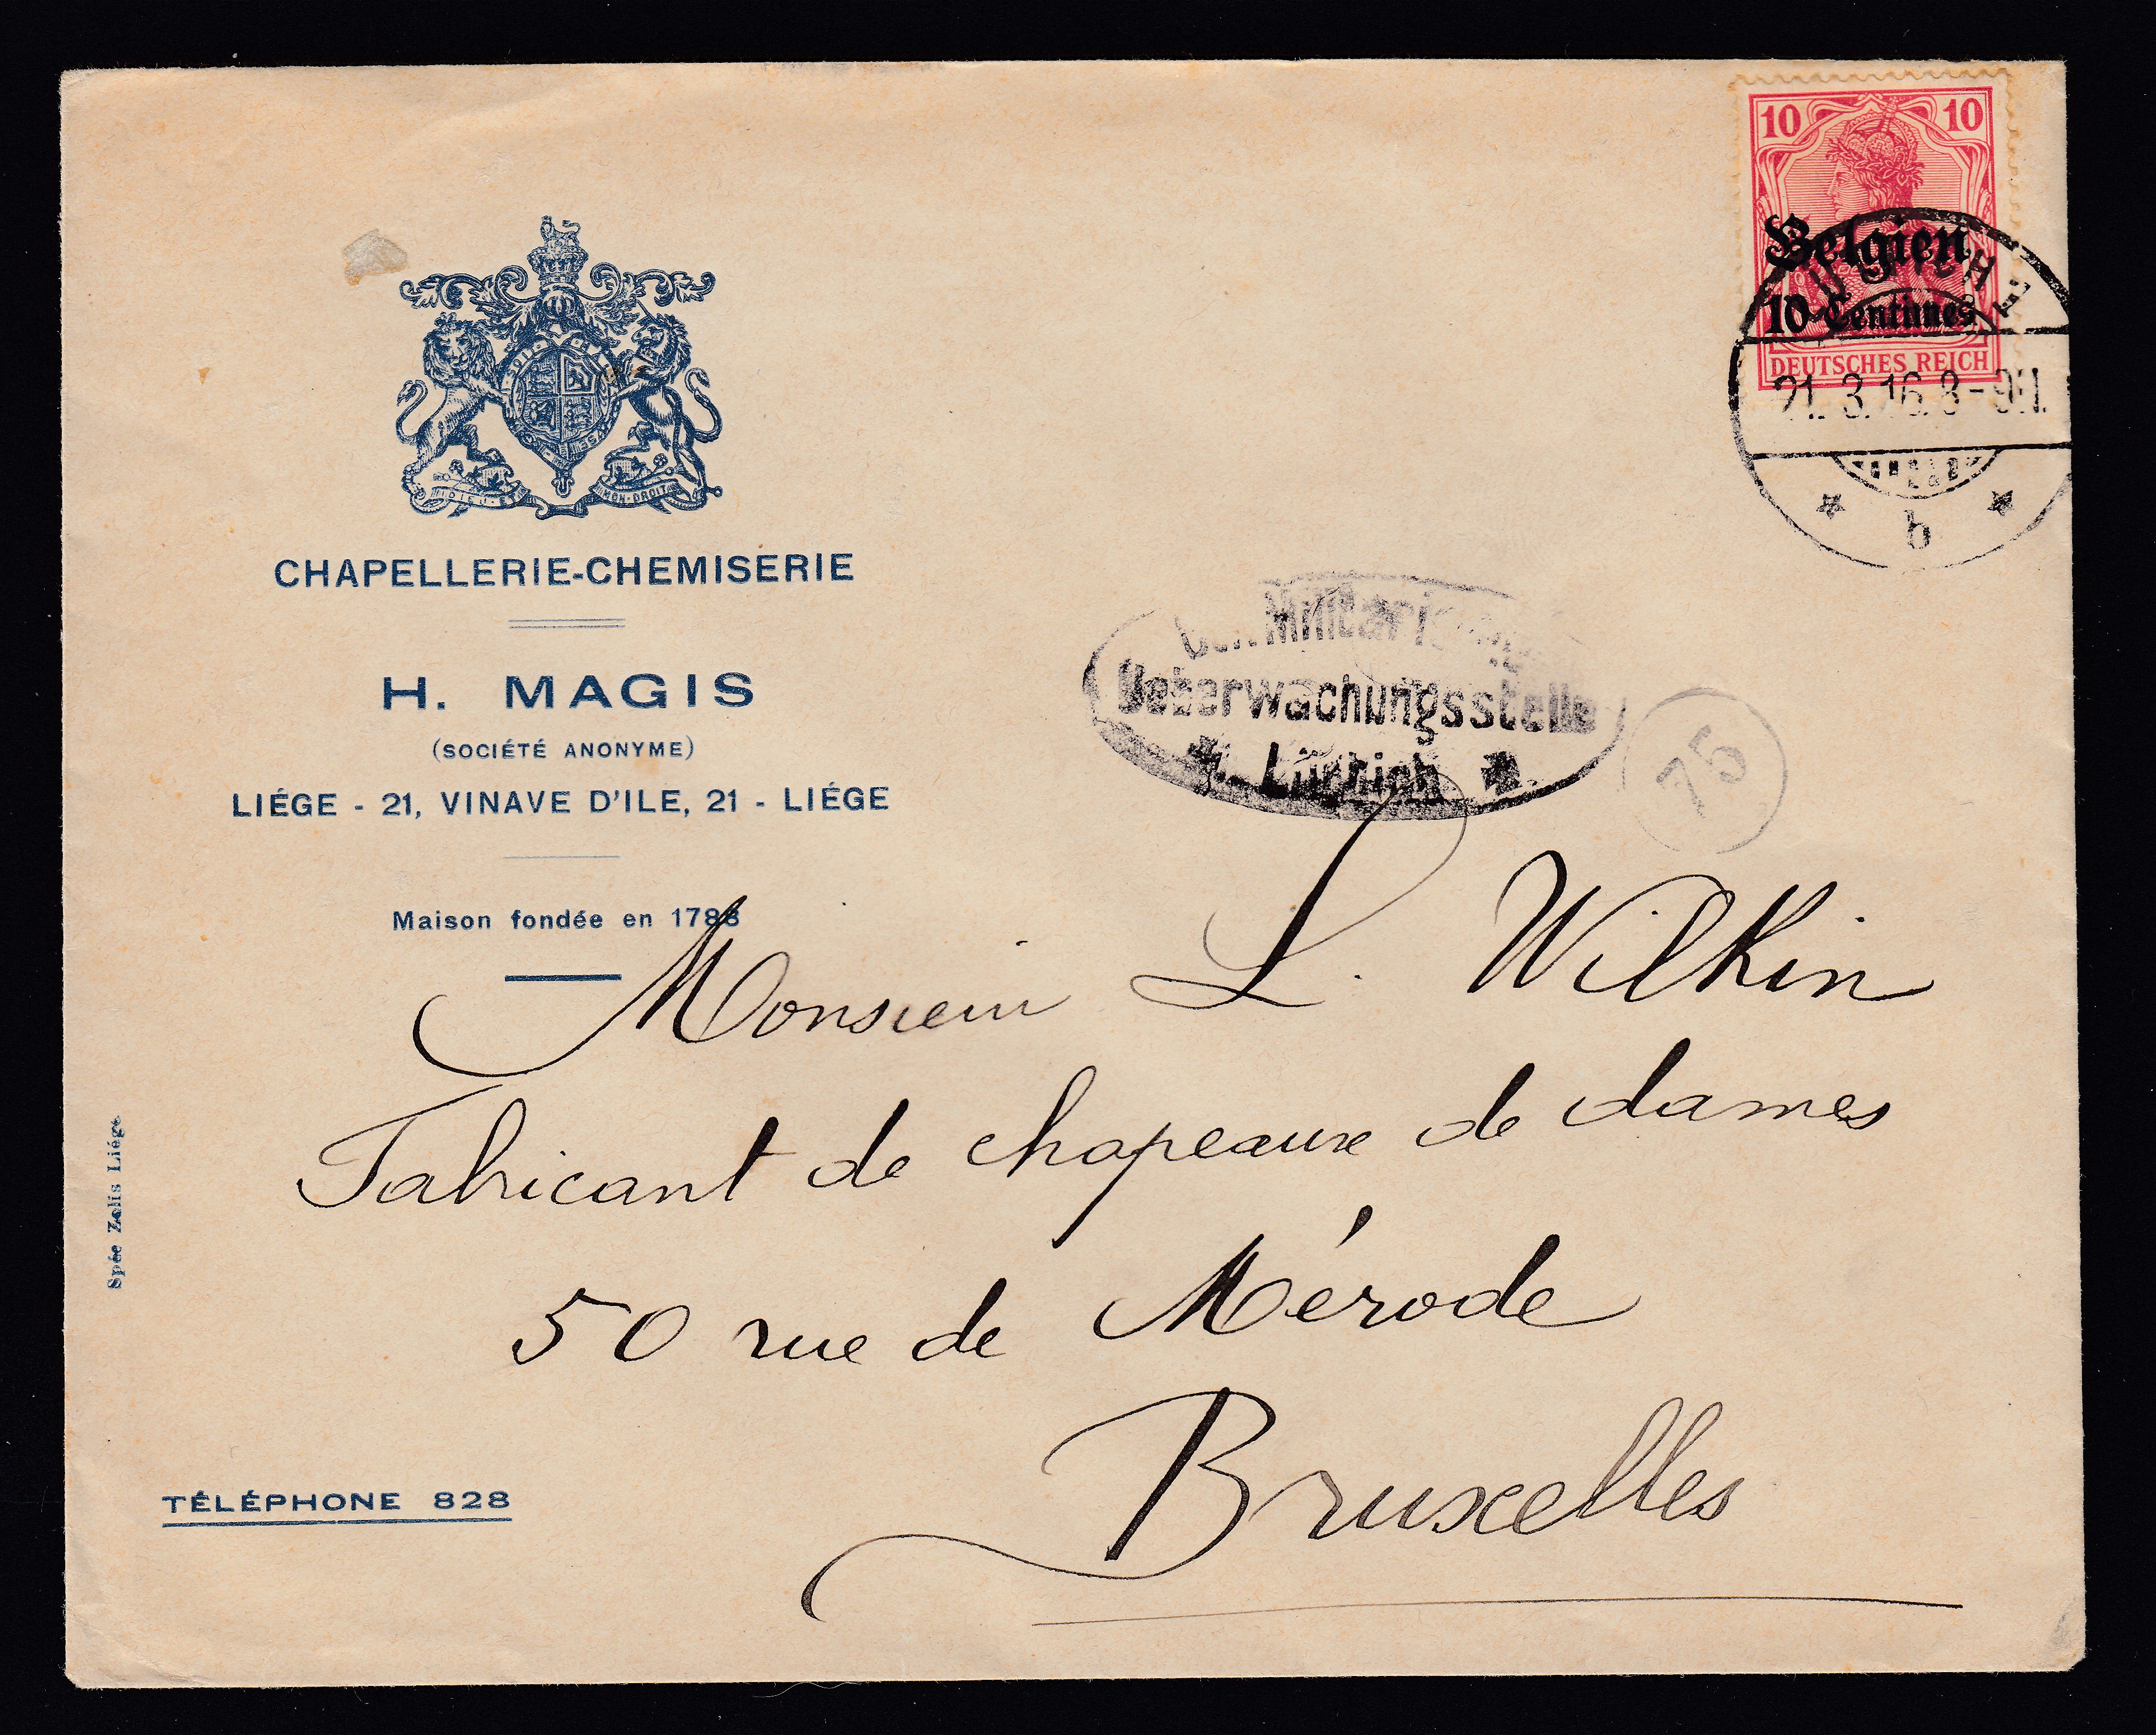 CHAPELLERIE-CHEMISERIE
H. MAGIS
(SOCIÉTÉ ANONYME)
LIÉGE - 21, VINAVE D'ILE, 21 - LIÉGE
Maison fondée en 1788
10 10
Belgien
10 Centimes
DEUTSCHES REICH
21. 3. 16. 8-9
b
Militärische
Ueberwachungsstelle
Lüttich
75
Monsieur L. Wilkin
Fabricant de chapeaux de dames
50 rue de Mérode
Bruxelles
Spée Zelis Liége
TÉLÉPHONE 828